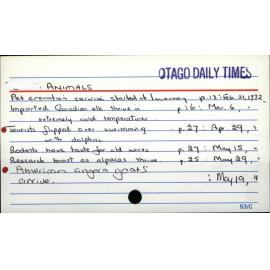 OTAGO DAILY TIMES
ANIMALS
Pet cremation service started at p.13: Feb. 21, 1992
Imported Canadian elk thrive in p.16: Mar. 6, "
extremely cold temperatures.
Tourists flipped over swimming p.27: Apr. 29, "
with dolphins
Rodents have taste for old p.27: May 15, "
Research boost as alpacas thrive p.25: May 29, "
American angora goats
arrive. : May 19, "
53/C